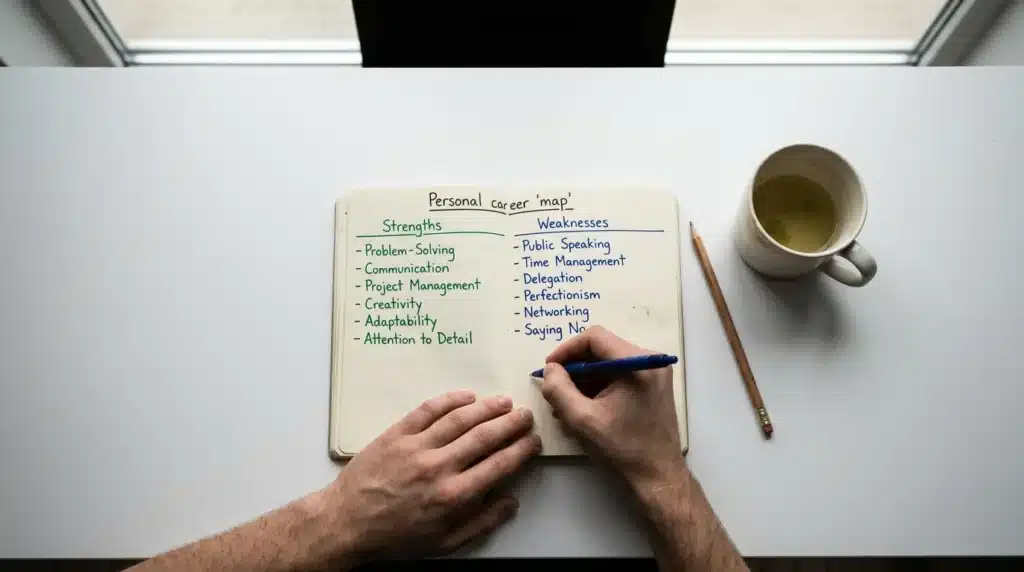 Personal career 'map'
Strengths
- Problem-Solving
- Communication
- Project Management
- Creativity
- Adaptability
- Attention to Detail
Weaknesses
- Public Speaking
- Time Management
- Delegation
- Perfectionism
- Networking
- Saying No